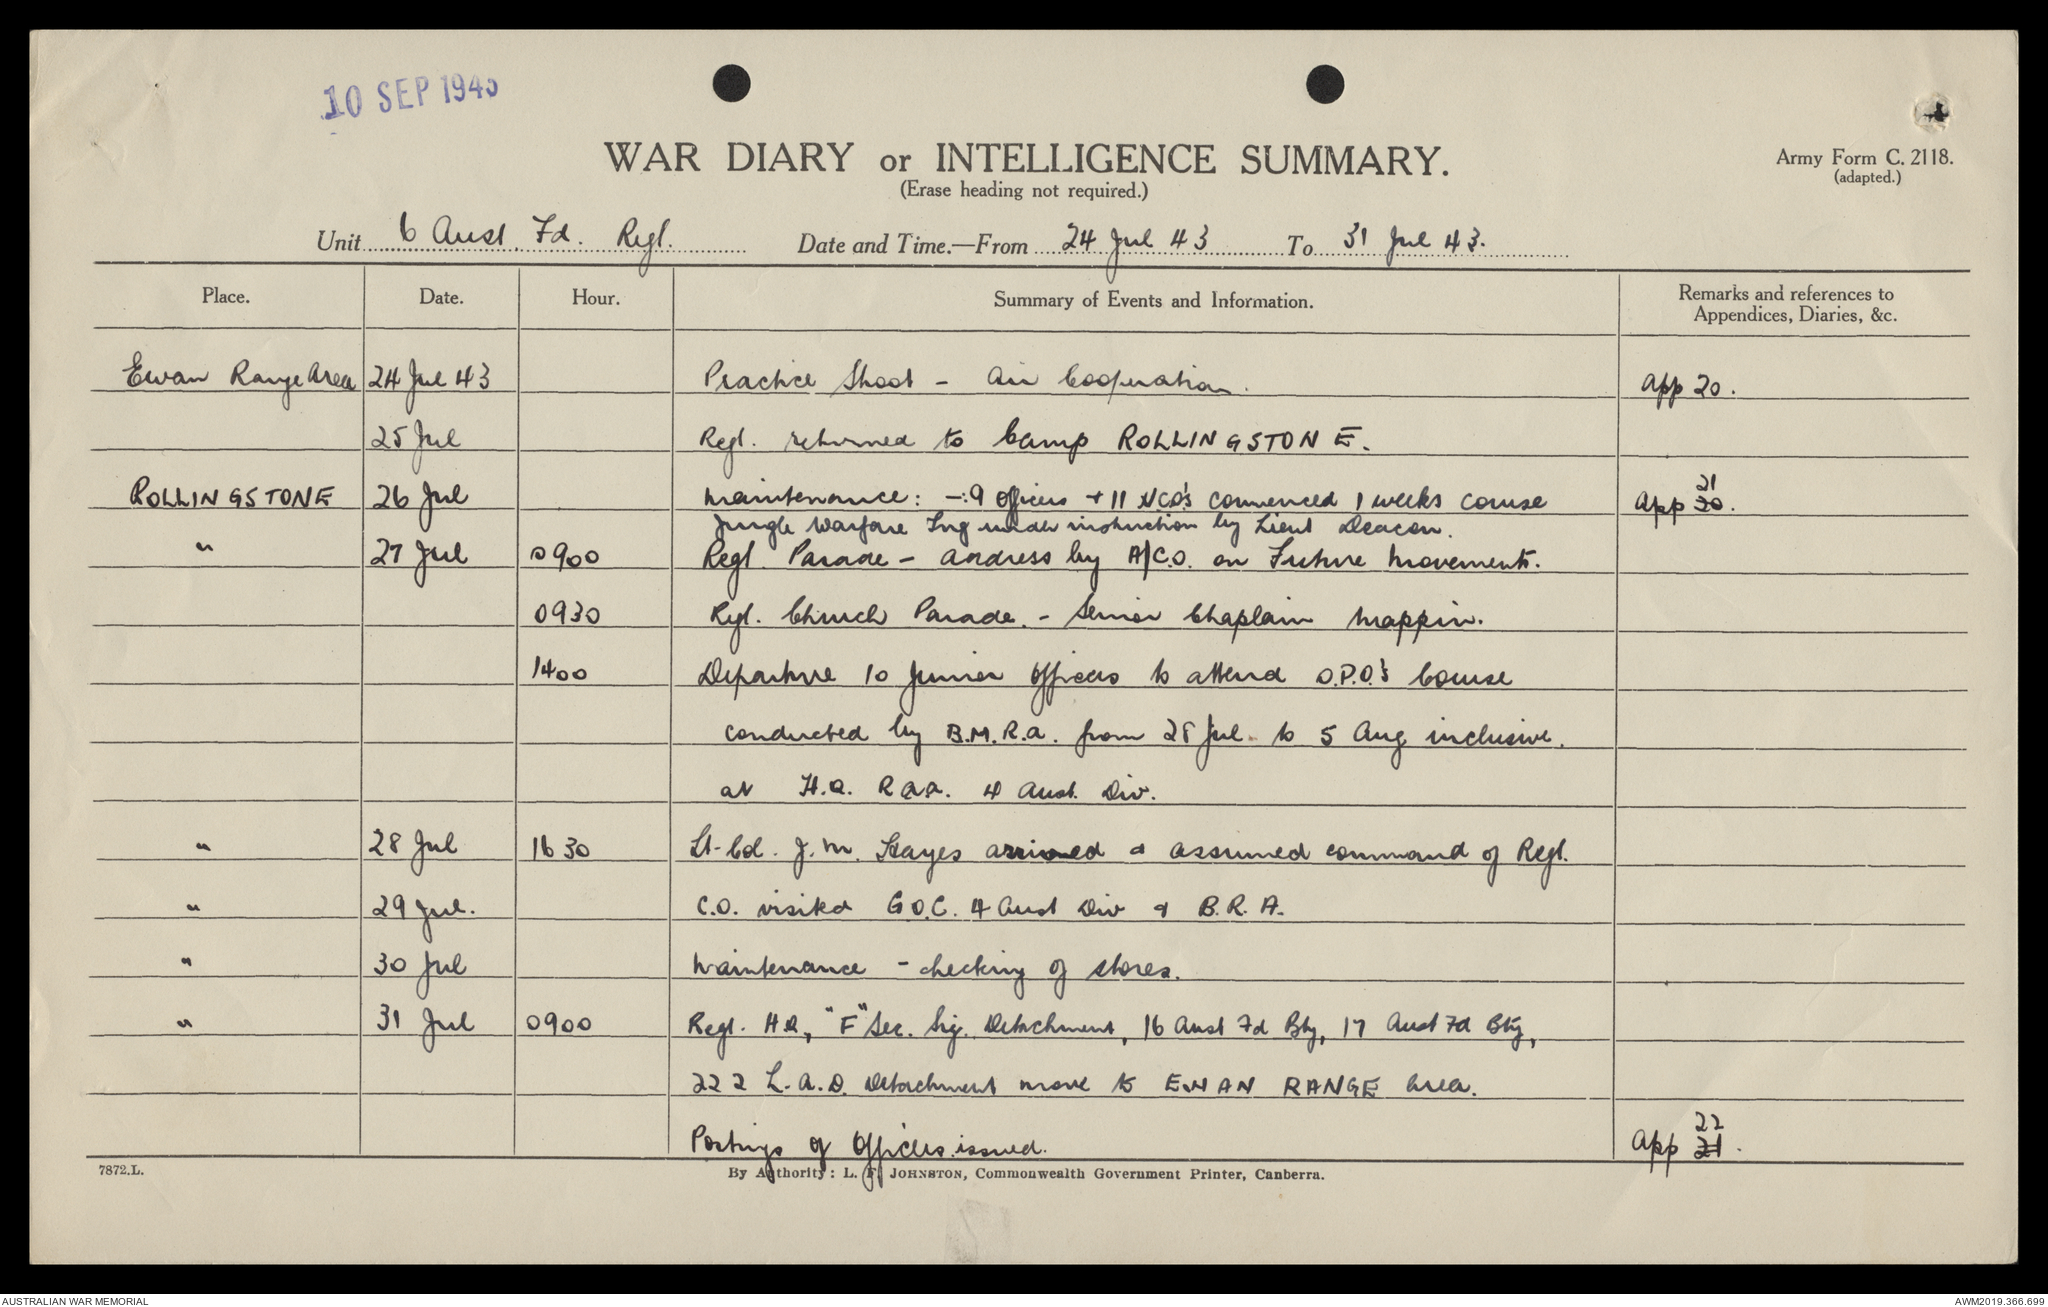 10 SEP 1943
WAR DIARY or INTELLIGENCE SUMMARY.
(Erase heading not required.)
Army Form C. 2118.
(adapted.)
Unit 6 Aust. Fd. Regt. Date and Time.—From 24 Jul 43 To 31 Jul 43.
Place. Date. Hour. Summary of Events and Information. Remarks and references to Appendices, Diaries, &c.
Ewan Range Area 24 Jul 43 Practice Shoot - Air Cooperation. App 20.
25 Jul Regt. returned to Camp ROLLINGSTONE.
ROLLINGSTONE 26 Jul Maintenance: -:9 Officers + 11 NCO's commenced 1 weeks course App 21 30.
Jungle Warfare Tng under instruction by Lieut Deacon.
" 27 Jul 0900 Regt. Parade - Address by A/C.O. on Future Movements.
0930 Regt. Church Parade. - Senior Chaplain Mappin.
1400 Departure 10 Junior Officers to attend O.P.O.'s Course
conducted by B.M.R.A. from 28 Jul. to 5 Aug inclusive.
at H.Q. RAA. 4 Aust. Div.
" 28 Jul 1630 Lt-Col. J.M. Hayes arrived & assumed command of Regt.
" 29 Jul. C.O. visited G.O.C. 4 Aust Div & B.R.A.
" 30 Jul Maintenance - checking of stores.
" 31 Jul 0900 Regt. HQ, "F" Sec. Sig. Detachment, 16 Aust Fd Bty, 17 Aust Fd Bty,
222 L.A.D. Detachment move to EWAN RANGE area.
Postings of Officers issued. App 22 21.
7872.L.
By Authority: L. F. JOHNSTON, Commonwealth Government Printer, Canberra.
AUSTRALIAN WAR MEMORIAL
AWM2019.366.699